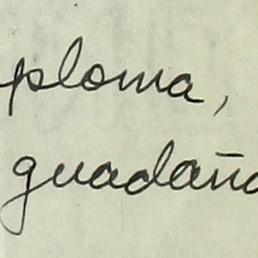 ploma,
guadaña